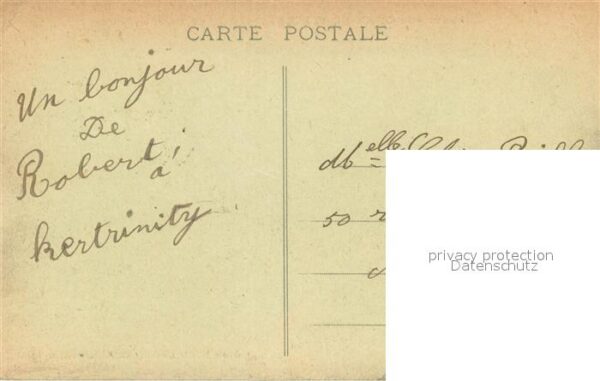 CARTE POSTALE
Un bonjour
De
Robert,
à
kertrinity
Melle
50 r
privacy protection
Datenschutz